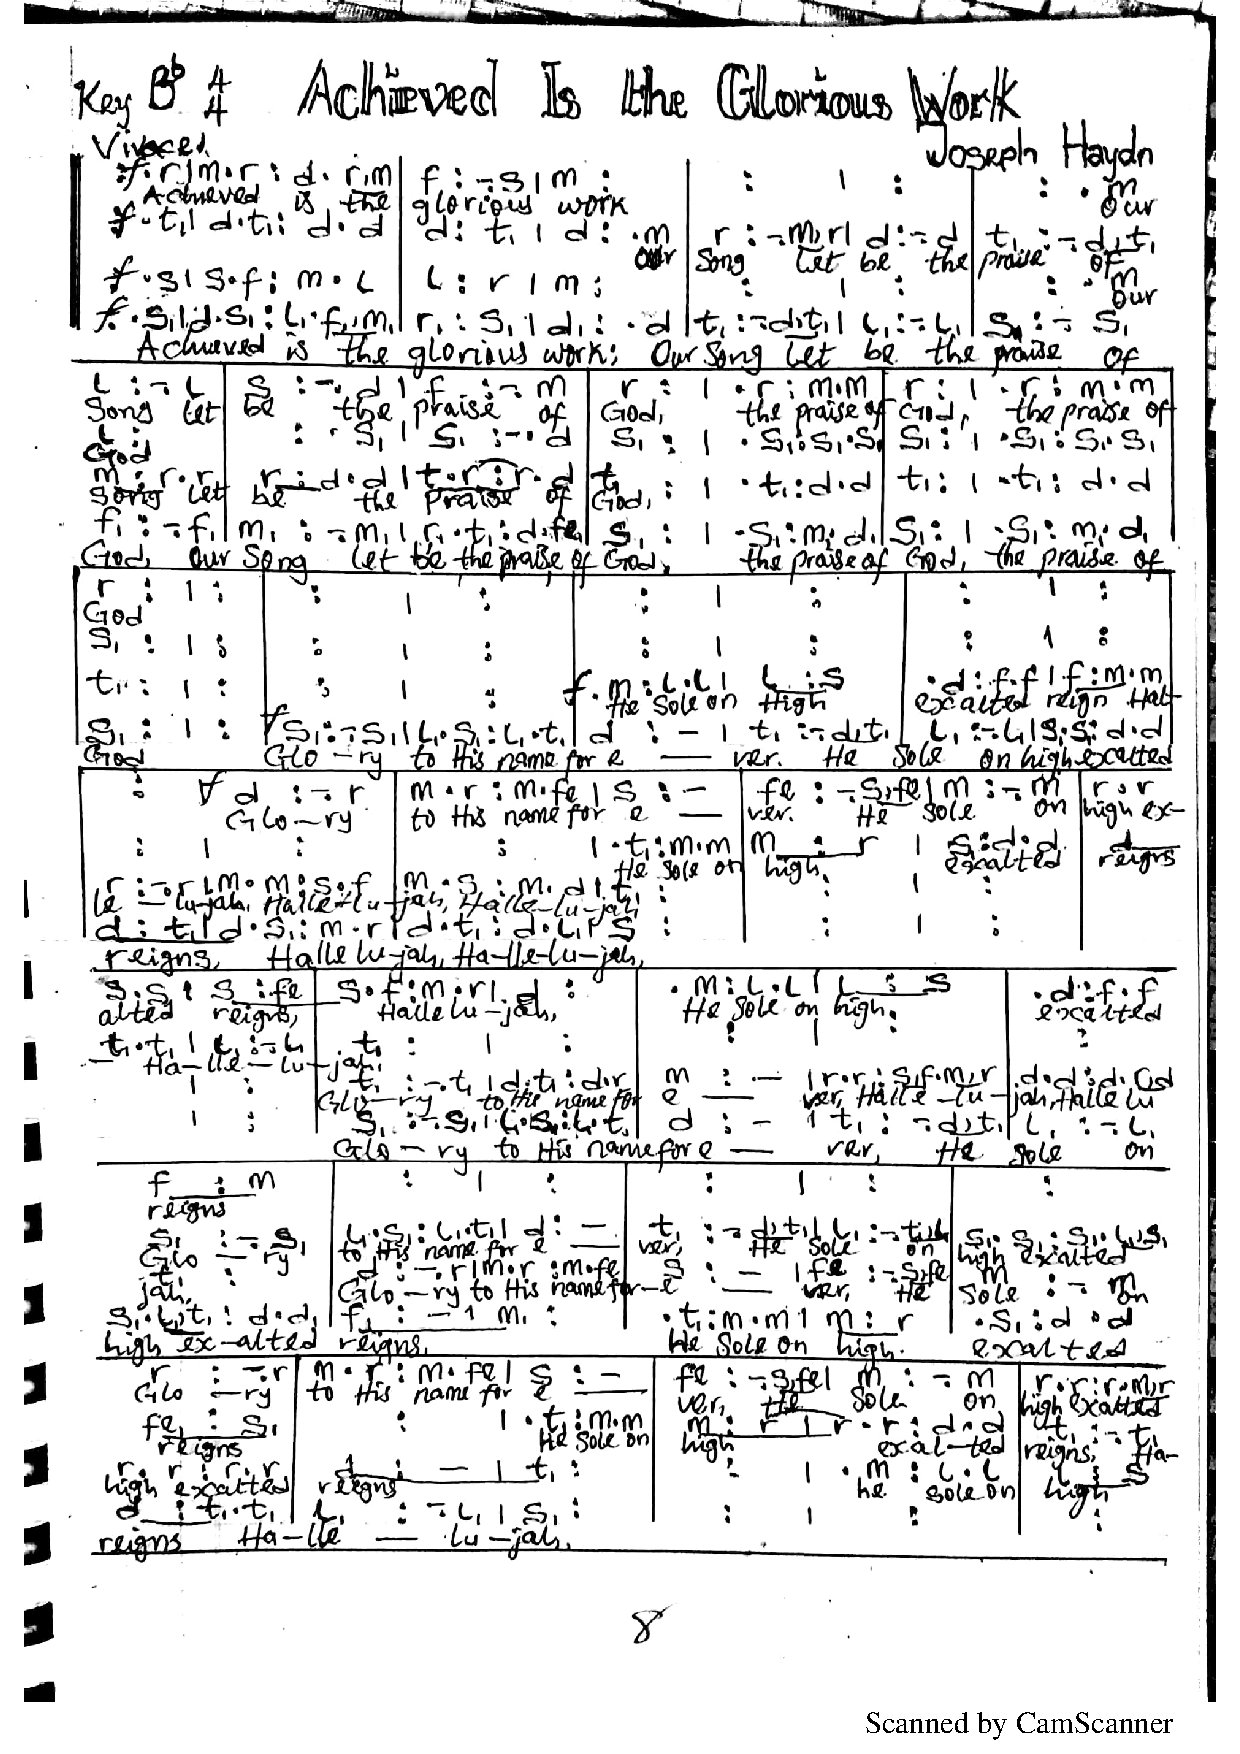 Key B♭ 4/4 Achieved Is the Glorious Work
Vivace. Joseph Haydn
f.r|m.r:d.r,m | f:-.s|m: | : | : | : .m
Achieved is the glorious work Our
f.t₁|d.t₁:d.d | d:t₁|d:.m | r:-.m,r|d:-.d | t₁:-.d,t₁
Our Song let be the praise of
f.s|s.f:m.l | l:r|m: | : | : | : .m
Our
f.s₁|d.s₁:l₁.f₁,m₁ | r₁:s₁|d₁:.d | t₁:-.d,t₁|l₁:-.l₁ | s₁:-.s₁
Achieved is the glorious work; Our Song let be the praise of
l:-.l | s:-.d|f:-.m | r:|.r:m.m | r:|.r:m.m
Song let be the praise of God, the praise of God, the praise of
l₁: | :.s₁|s₁:-.d | s₁:|.s₁:s₁.s₁ | s₁:|.s₁:s₁.s₁
God
m:r.r | r:d.d|t₁.r:r.d | t₁:|.t₁:d.d | t₁:|.t₁:d.d
Song let be the praise of God,
f₁:-.f₁ | m₁:-.m₁|r₁.t₁:d.fe₁ | s₁:|.s₁:m₁.d₁ | s₁:|.s₁:m₁.d₁
God, our Song let be the praise of God, the praise of God, the praise of
r:|: | :|: | :|: | :|:
God
s₁:|: | :|: | :|: | :|:
t₁:|: | :|: | f.m:l.l|l:s | .d:f.f|f:m.m
He Sole on High excalted reign Hal-
s₁:|: | f s₁:-.s₁|l₁.s₁:l₁.t₁ | d:-|t₁:-.d,t₁ | l₁:-.l₁|s₁.s₁:d.d
God Glo-ry to His name for e — ver. He Sole on high excalted
: | f d:-.r | m.r:m.fe|s:- | fe:-.s,fe|m:-.m | r.r
Glo-ry to His name for e — ver. He Sole on high ex-
:|: | :|.t₁:m.m | m:r|s₁:d.d | d
He Sole on high, excalted reigns
r:-.r|m.m:s.f | m.s:m.d|t₁: | :|: | :
le — lu-jah, Halle-lu-jah, Halle-lu-jah,
d:t₁|d.s₁:m.r | d.t₁:d.l₁|s₁: | :|:
reigns, Halle lu-jah, Ha-lle-lu-jah,
s.s|s:fe | s.f:m.r|d: | .m:l.l|l:s | .d:f.f
alted reigns, Halle lu-jah, He Sole on high. excalted
t₁.t₁|l₁:-.l₁ | t₁:|: | :|: | :
— Ha-lle-lu-jah,
|: | t₁:-.t₁|d.t₁:d.r | m:-|r.r:s,f.m,r | .d.d:d.d
Glo-ry to His name for e — ver, Halle-lu-jah, Halle lu
|: | s₁:-.s₁|l₁.s₁:l₁.t₁ | d:-|t₁:-.d,t₁ | l₁:-.l₁
Glo-ry to His name for e — ver, He sole on
f:m | :|: | :|: | :
reigns
s₁:-.s₁ | l₁.s₁:l₁.t₁|d:- | t₁:-.d,t₁|l₁:-.t₁,l₁ | s₁.s₁:s₁.l₁,s₁
Glo-ry to His name for e — ver, He Sole on high excalted
t₁: | d:-.r|m.r:m.fe | s:-|fe:-.s,fe | m:-.m
jah, Glo-ry to His name for-e — ver, He Sole on
s₁.l₁,t₁:d.d | f₁:-|m₁: | .t₁:m.m|m:r | .s₁:d.d
high ex-alted reigns, He Sole on high. excalted
r:-.r | m.r:m.fe|s:- | fe:-.s,fe|m:-.m | r.r:r.m,r
Glo-ry to His name for e — ver, He Sole on high excalted
fe₁:s₁ | :|.t₁:m.m | m:r|r.r:d.d | t₁:-.t₁
reigns He Sole on high exal-ted reigns, Ha-
r.r:r.r | d:-|t₁: | :|.m:l.l | l:s
high excalted reigns he sole on high
d:t₁.t₁ | l₁:-.l₁|s₁: | :|: | :
reigns Ha-lle — lu-jah,
8
Scanned by CamScanner